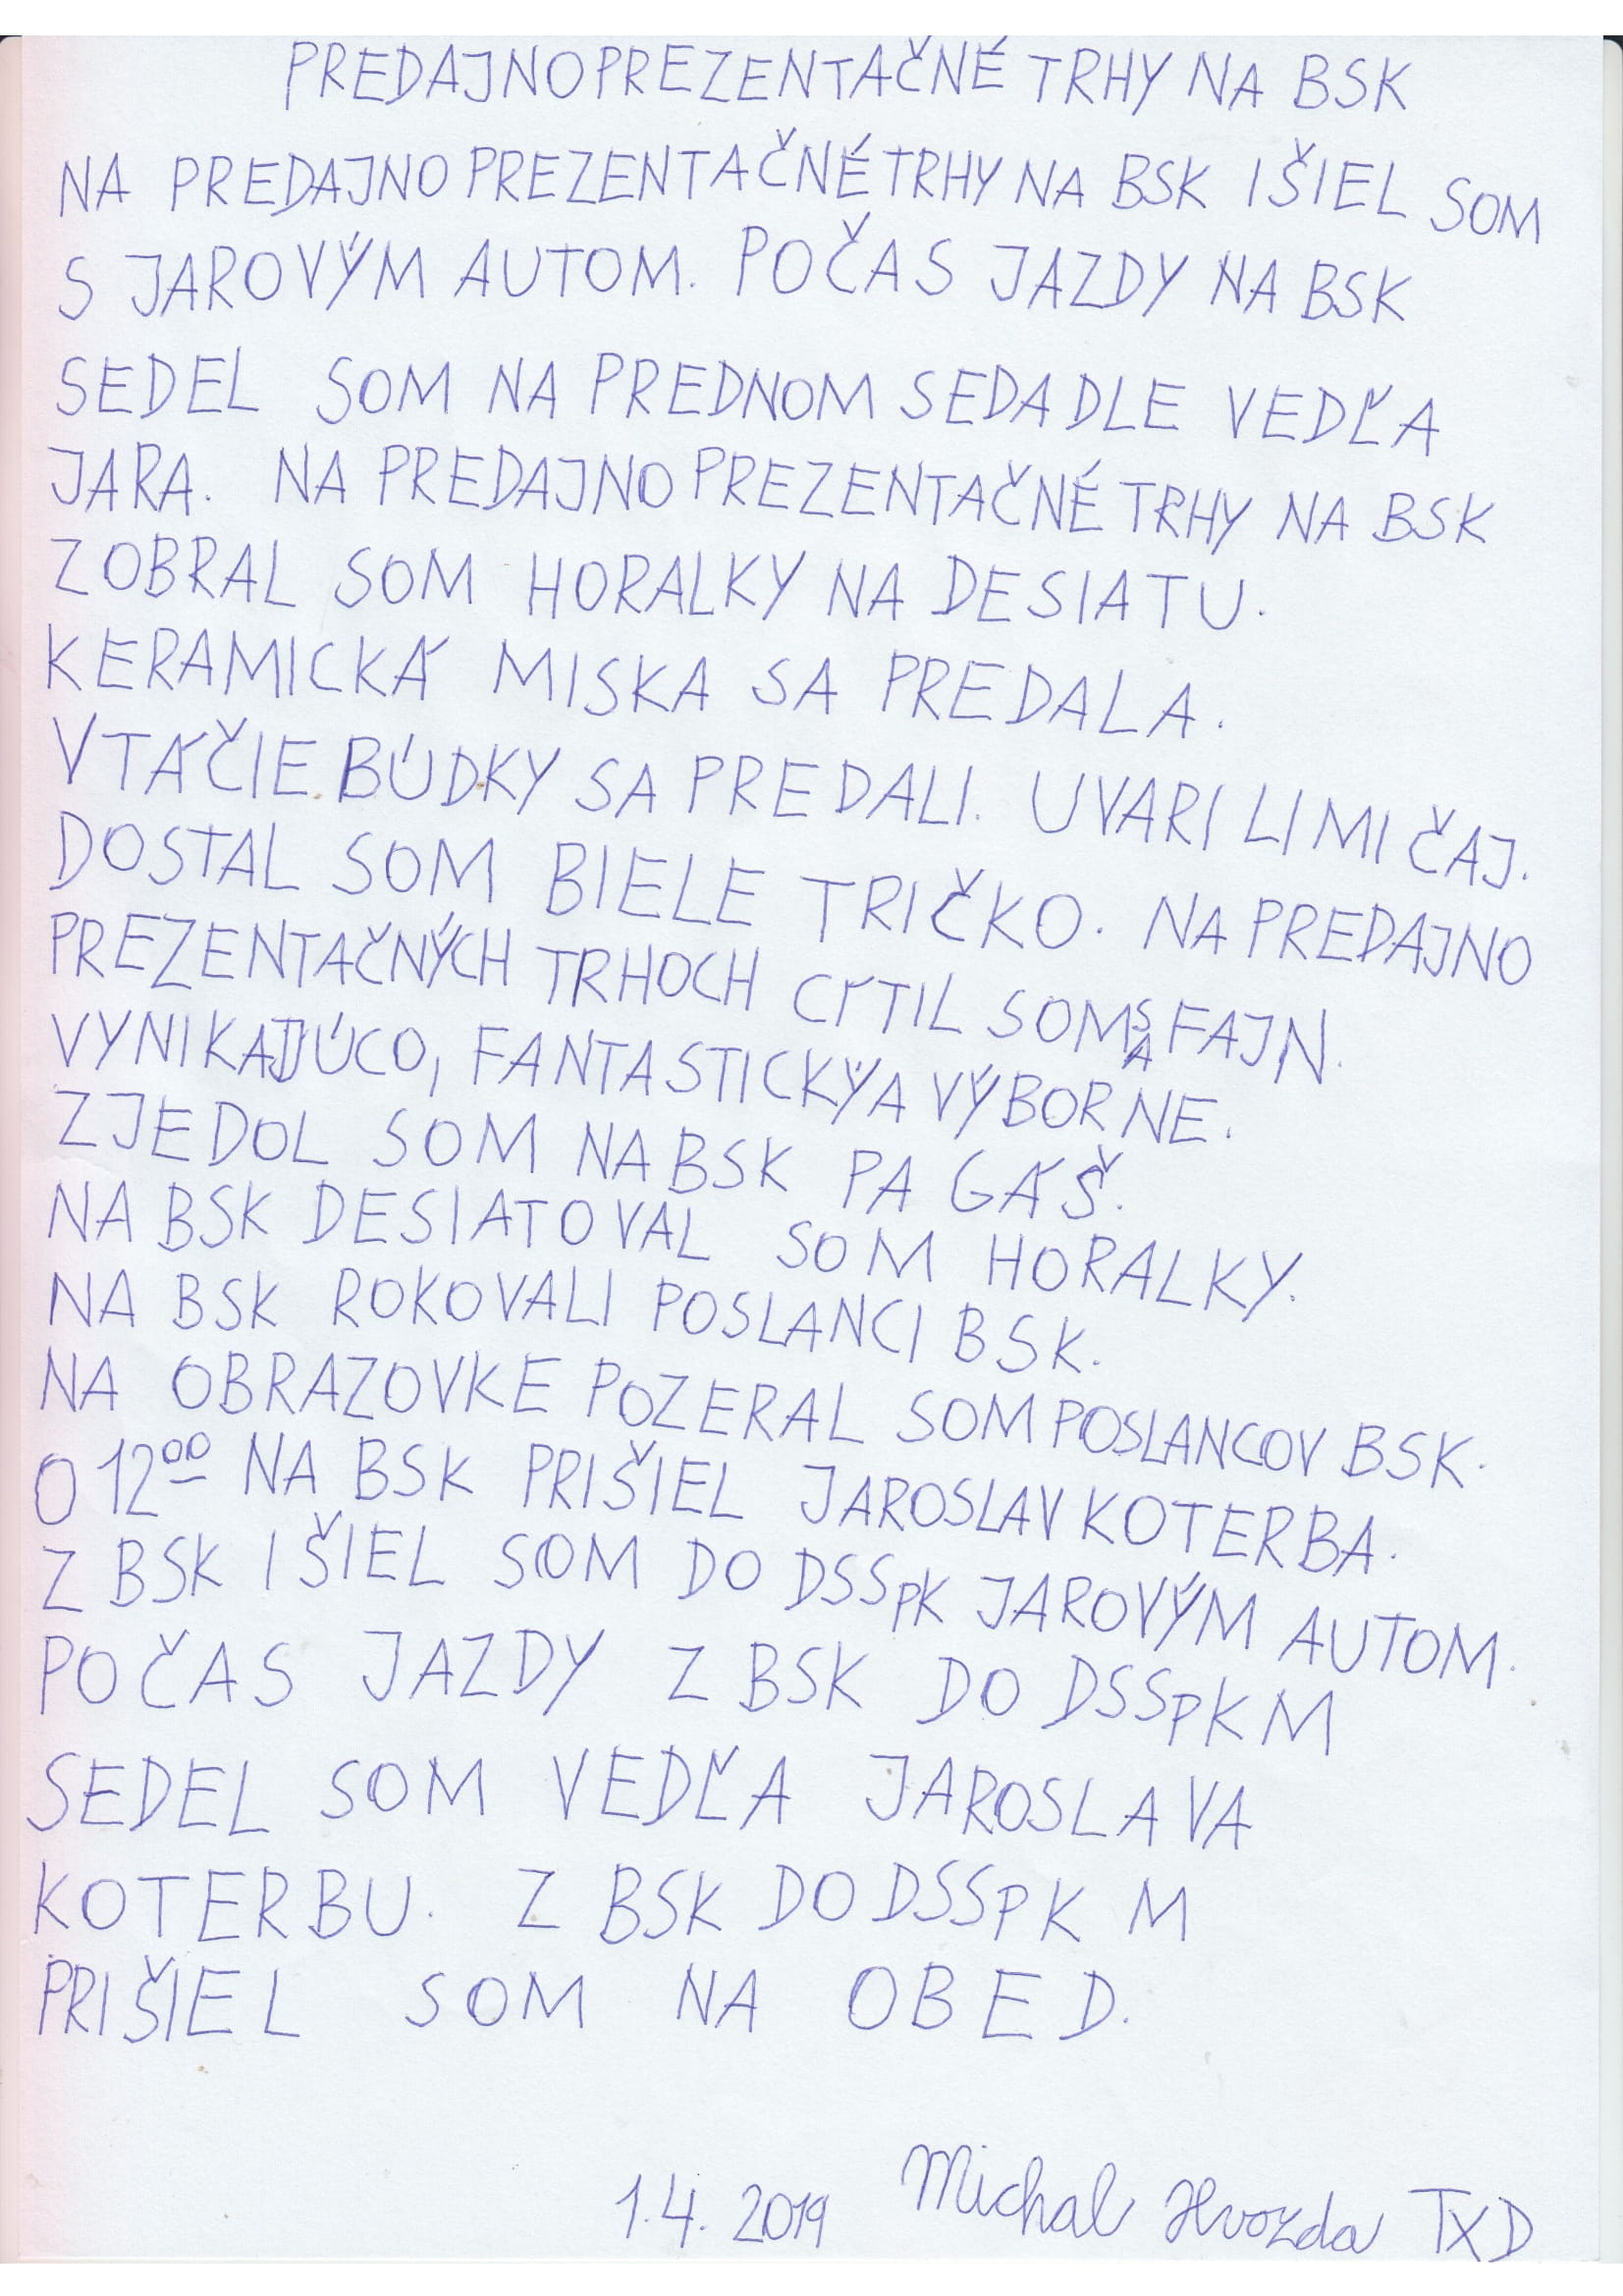 PREDAJNOPREZENTAČNÉ TRHY NA BSK
NA PREDAJNO PREZENTAČNÉ TRHY NA BSK IŠIEL SOM
S JAROVÝM AUTOM. POČAS JAZDY NA BSK
SEDEL SOM NA PREDNOM SEDADLE VEDĽA
JARA. NA PREDAJNO PREZENTAČNÉ TRHY NA BSK
ZOBRAL SOM HORALKY NA DESIATU.
KERAMICKÁ MISKA SA PREDALA.
VTÁČIE BÚDKY SA PREDALI. UVARILI MI ČAJ.
DOSTAL SOM BIELE TRIČKO. NA PREDAJNO
PREZENTAČNÝCH TRHOCH CÍTIL SOM SA FAJN.
VYNIKAJÚCO, FANTASTICKÝ A VÝBORNE.
ZJEDOL SOM NA BSK PAGÁŠ.
NA BSK DESIATOVAL SOM HORALKY.
NA BSK ROKOVALI POSLANCI BSK.
NA OBRAZOVKE POZERAL SOM POSLANCOV BSK.
O 12⁰⁰ NA BSK PRIŠIEL JAROSLAV KOTERBA.
Z BSK IŠIEL SOM DO DSSPK JAROVÝM AUTOM.
POČAS JAZDY Z BSK DO DSSPKM
SEDEL SOM VEDĽA JAROSLAVA
KOTERBU. Z BSK DO DSSPK M
PRIŠIEL SOM NA OBED.
1.4. 2019 Michal Hvozda TXD